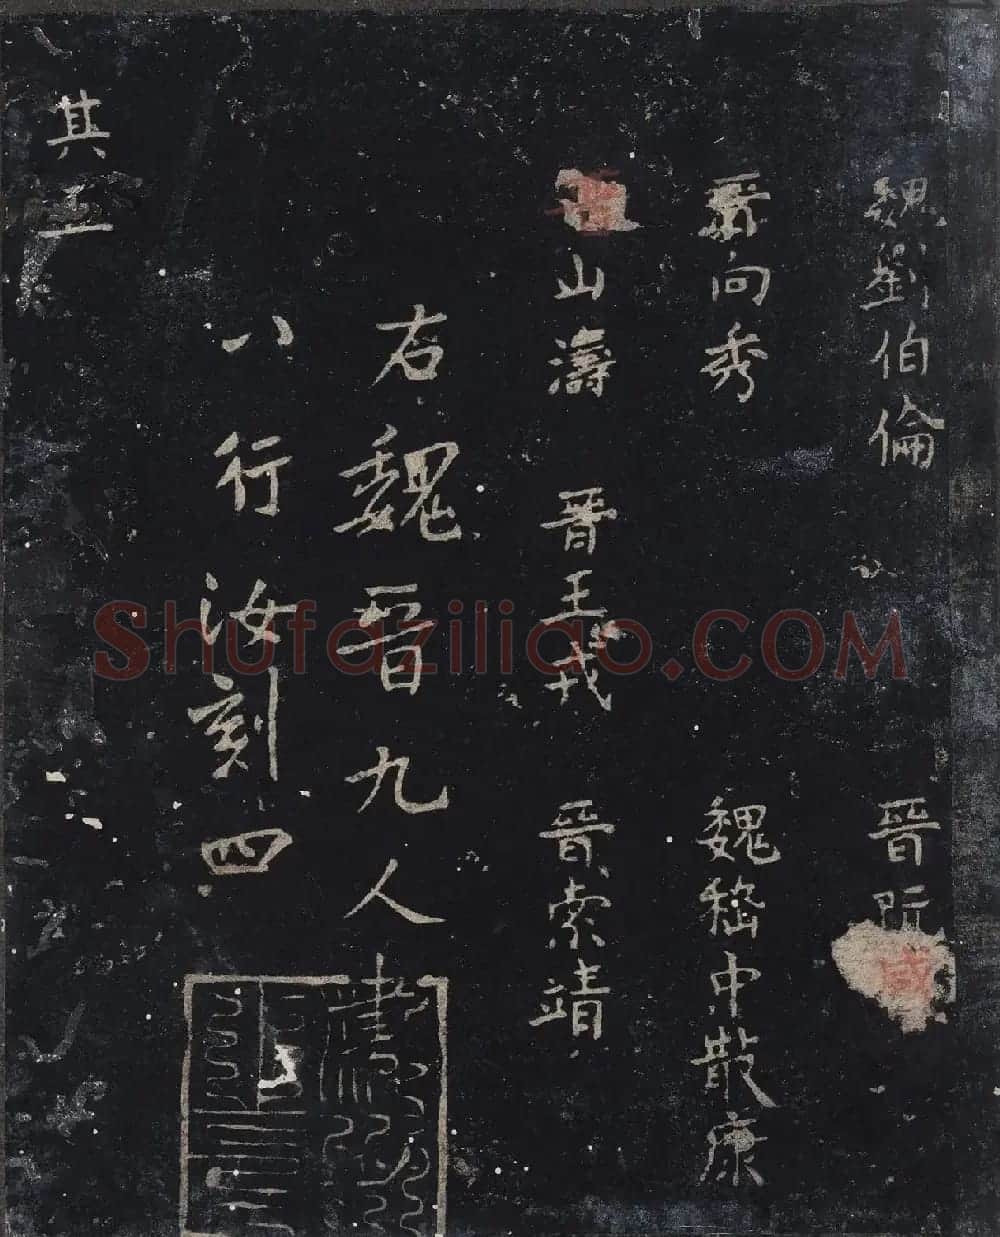 魏劉伯倫 晉阮咸
晉向秀 魏嵇中散康
晉山濤 晉王戎 晉索靖
右魏晉九人書
八行汝刻四
其五
Shufaziliao.COM